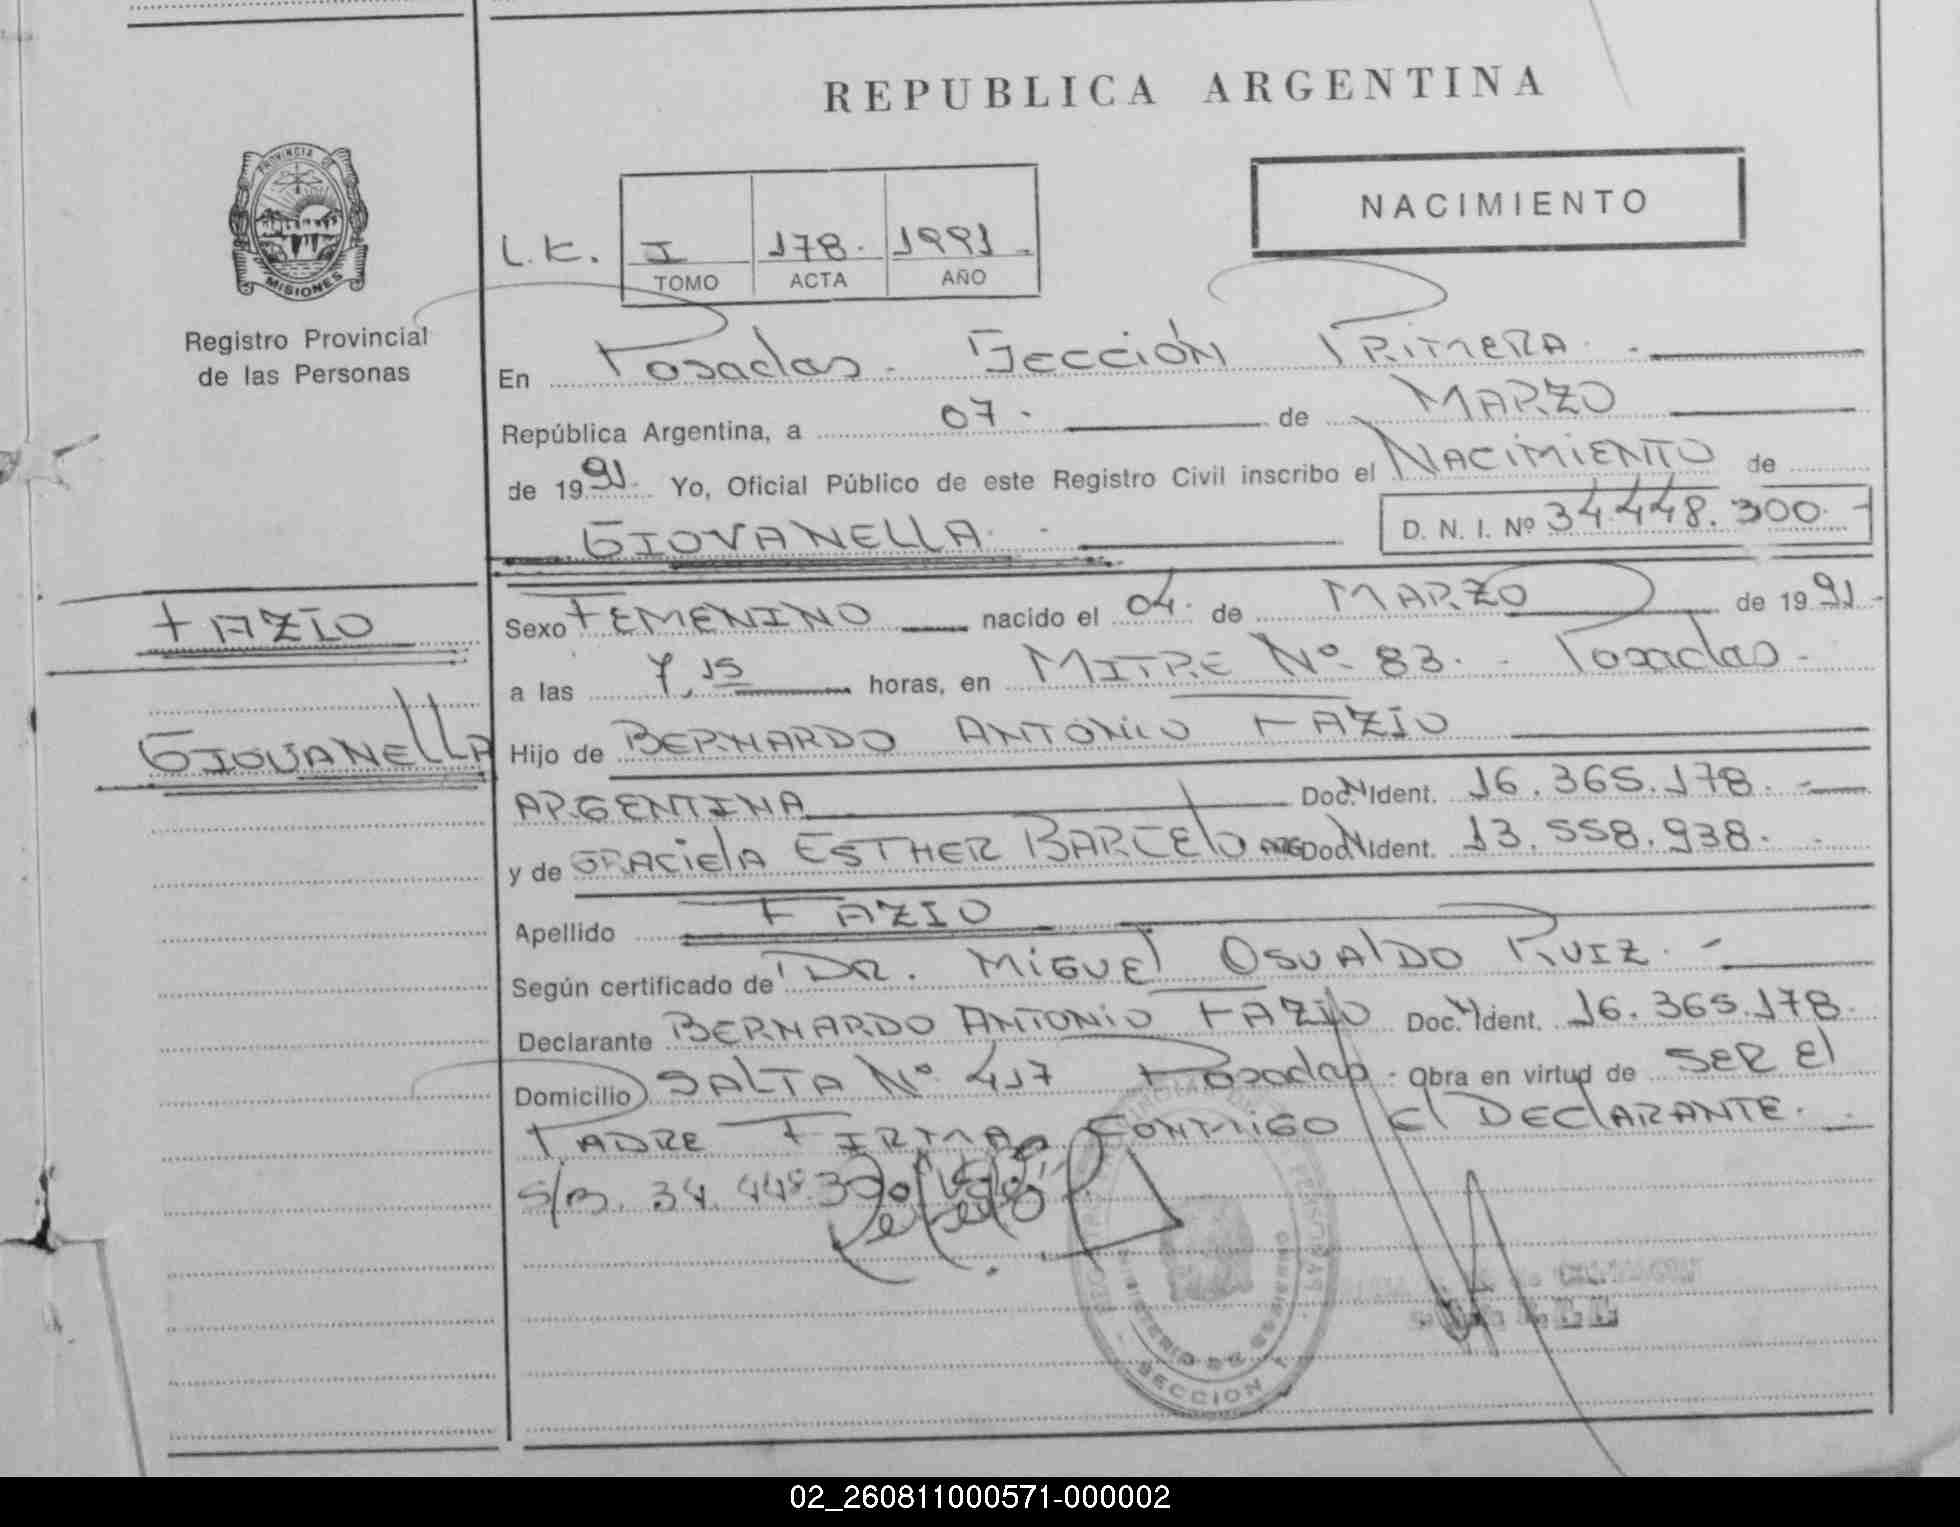 REPUBLICA ARGENTINA
NACIMIENTO
PROVINCIA DE
MISIONES
Registro Provincial
de las Personas
L.K. I 178. 1991.
TOMO ACTA AÑO
En Posadas. Sección Primera.
República Argentina, a 07. de MARZO
de 1991. Yo, Oficial Público de este Registro Civil inscribo el NACIMIENTO de
GIOVANELLA. D. N. I. Nº 34.448.300.-
FAZIO
Sexo FEMENINO nacido el 04. de MARZO de 1991.
a las 7,15 horas, en MITRE Nº 83. - Posadas.
GIOVANELLA
Hijo de BERNARDO ANTONIO FAZIO
ARGENTINA Doc.N Ident. 16.365.178.-
y de GRACIELA ESTHER BARCELO ARG Doc.N Ident. 13.558.938.
Apellido FAZIO
Según certificado de DR. MIGUEL OSVALDO RUIZ.-
Declarante BERNARDO ANTONIO FAZIO Doc.N Ident. 16.365.178.
Domicilio SALTA Nº 417 Posadas. Obra en virtud de SER El
PADRE FIRMA CONMIGO El DECLARANTE.
S/B. 34.448.300
MINISTERIO DE
SECCION 1
02_260811000571-000002